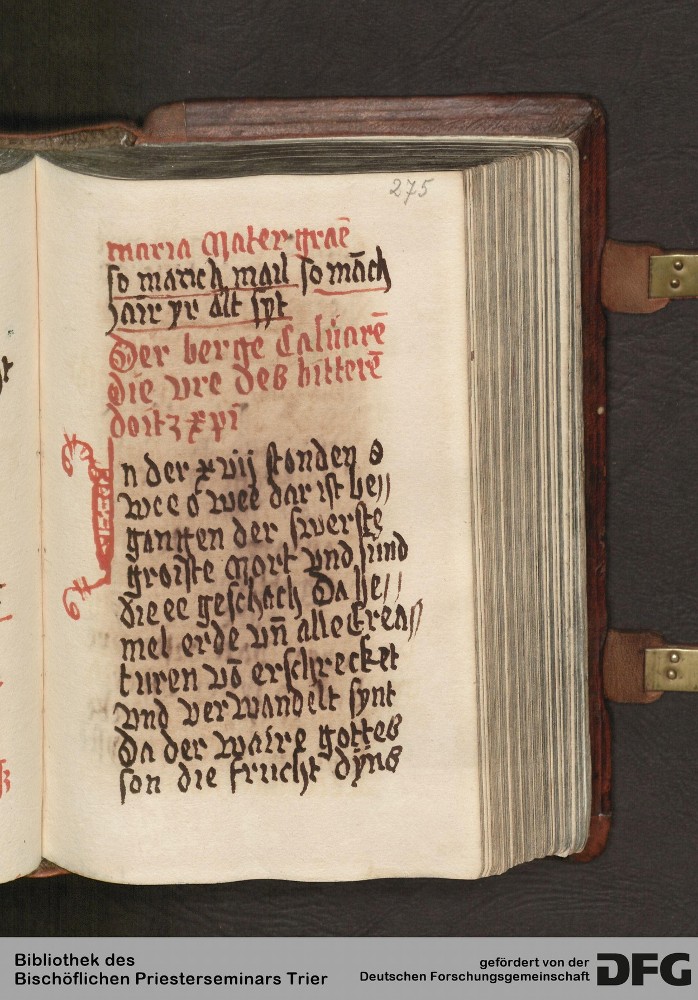 275
maria Mater graē
so manich mail so māch
jair yr alt syt
Der berge Caluarē
die vre des bitterē
doitz xpi
In der xvij stonden o
wee o wee dar ist be//
gangen der swerste
groiste Mort vnd sund
die ee geschach Da he//
mel erde vn̄ alle Crea//
turen vō erschrecket
vnd verwandelt synt
Da der waire gottes
son die frucht dyns
Bibliothek des
Bischöflichen Priesterseminars Trier
gefördert von der
Deutschen Forschungsgemeinschaft
DFG